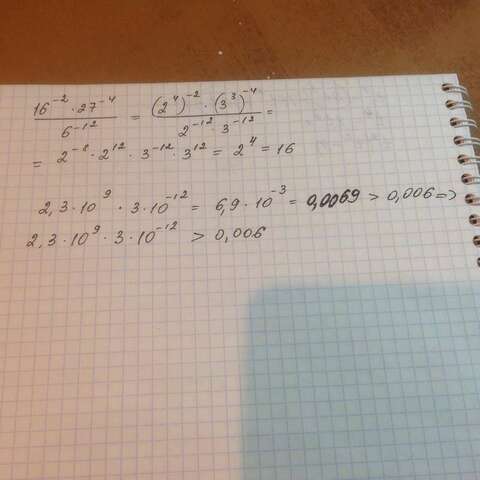 16⁻² · 27⁻⁴ / 6⁻¹² = (2⁴)⁻² · (3³)⁻⁴ / 2⁻¹² · 3⁻¹² =
= 2⁻⁸ · 2¹² · 3⁻¹² · 3¹² = 2⁴ = 16
2,3 · 10⁹ · 3 · 10⁻¹² = 6,9 · 10⁻³ = 0,0069 > 0,006 =>
2,3 · 10⁹ · 3 · 10⁻¹² > 0,006